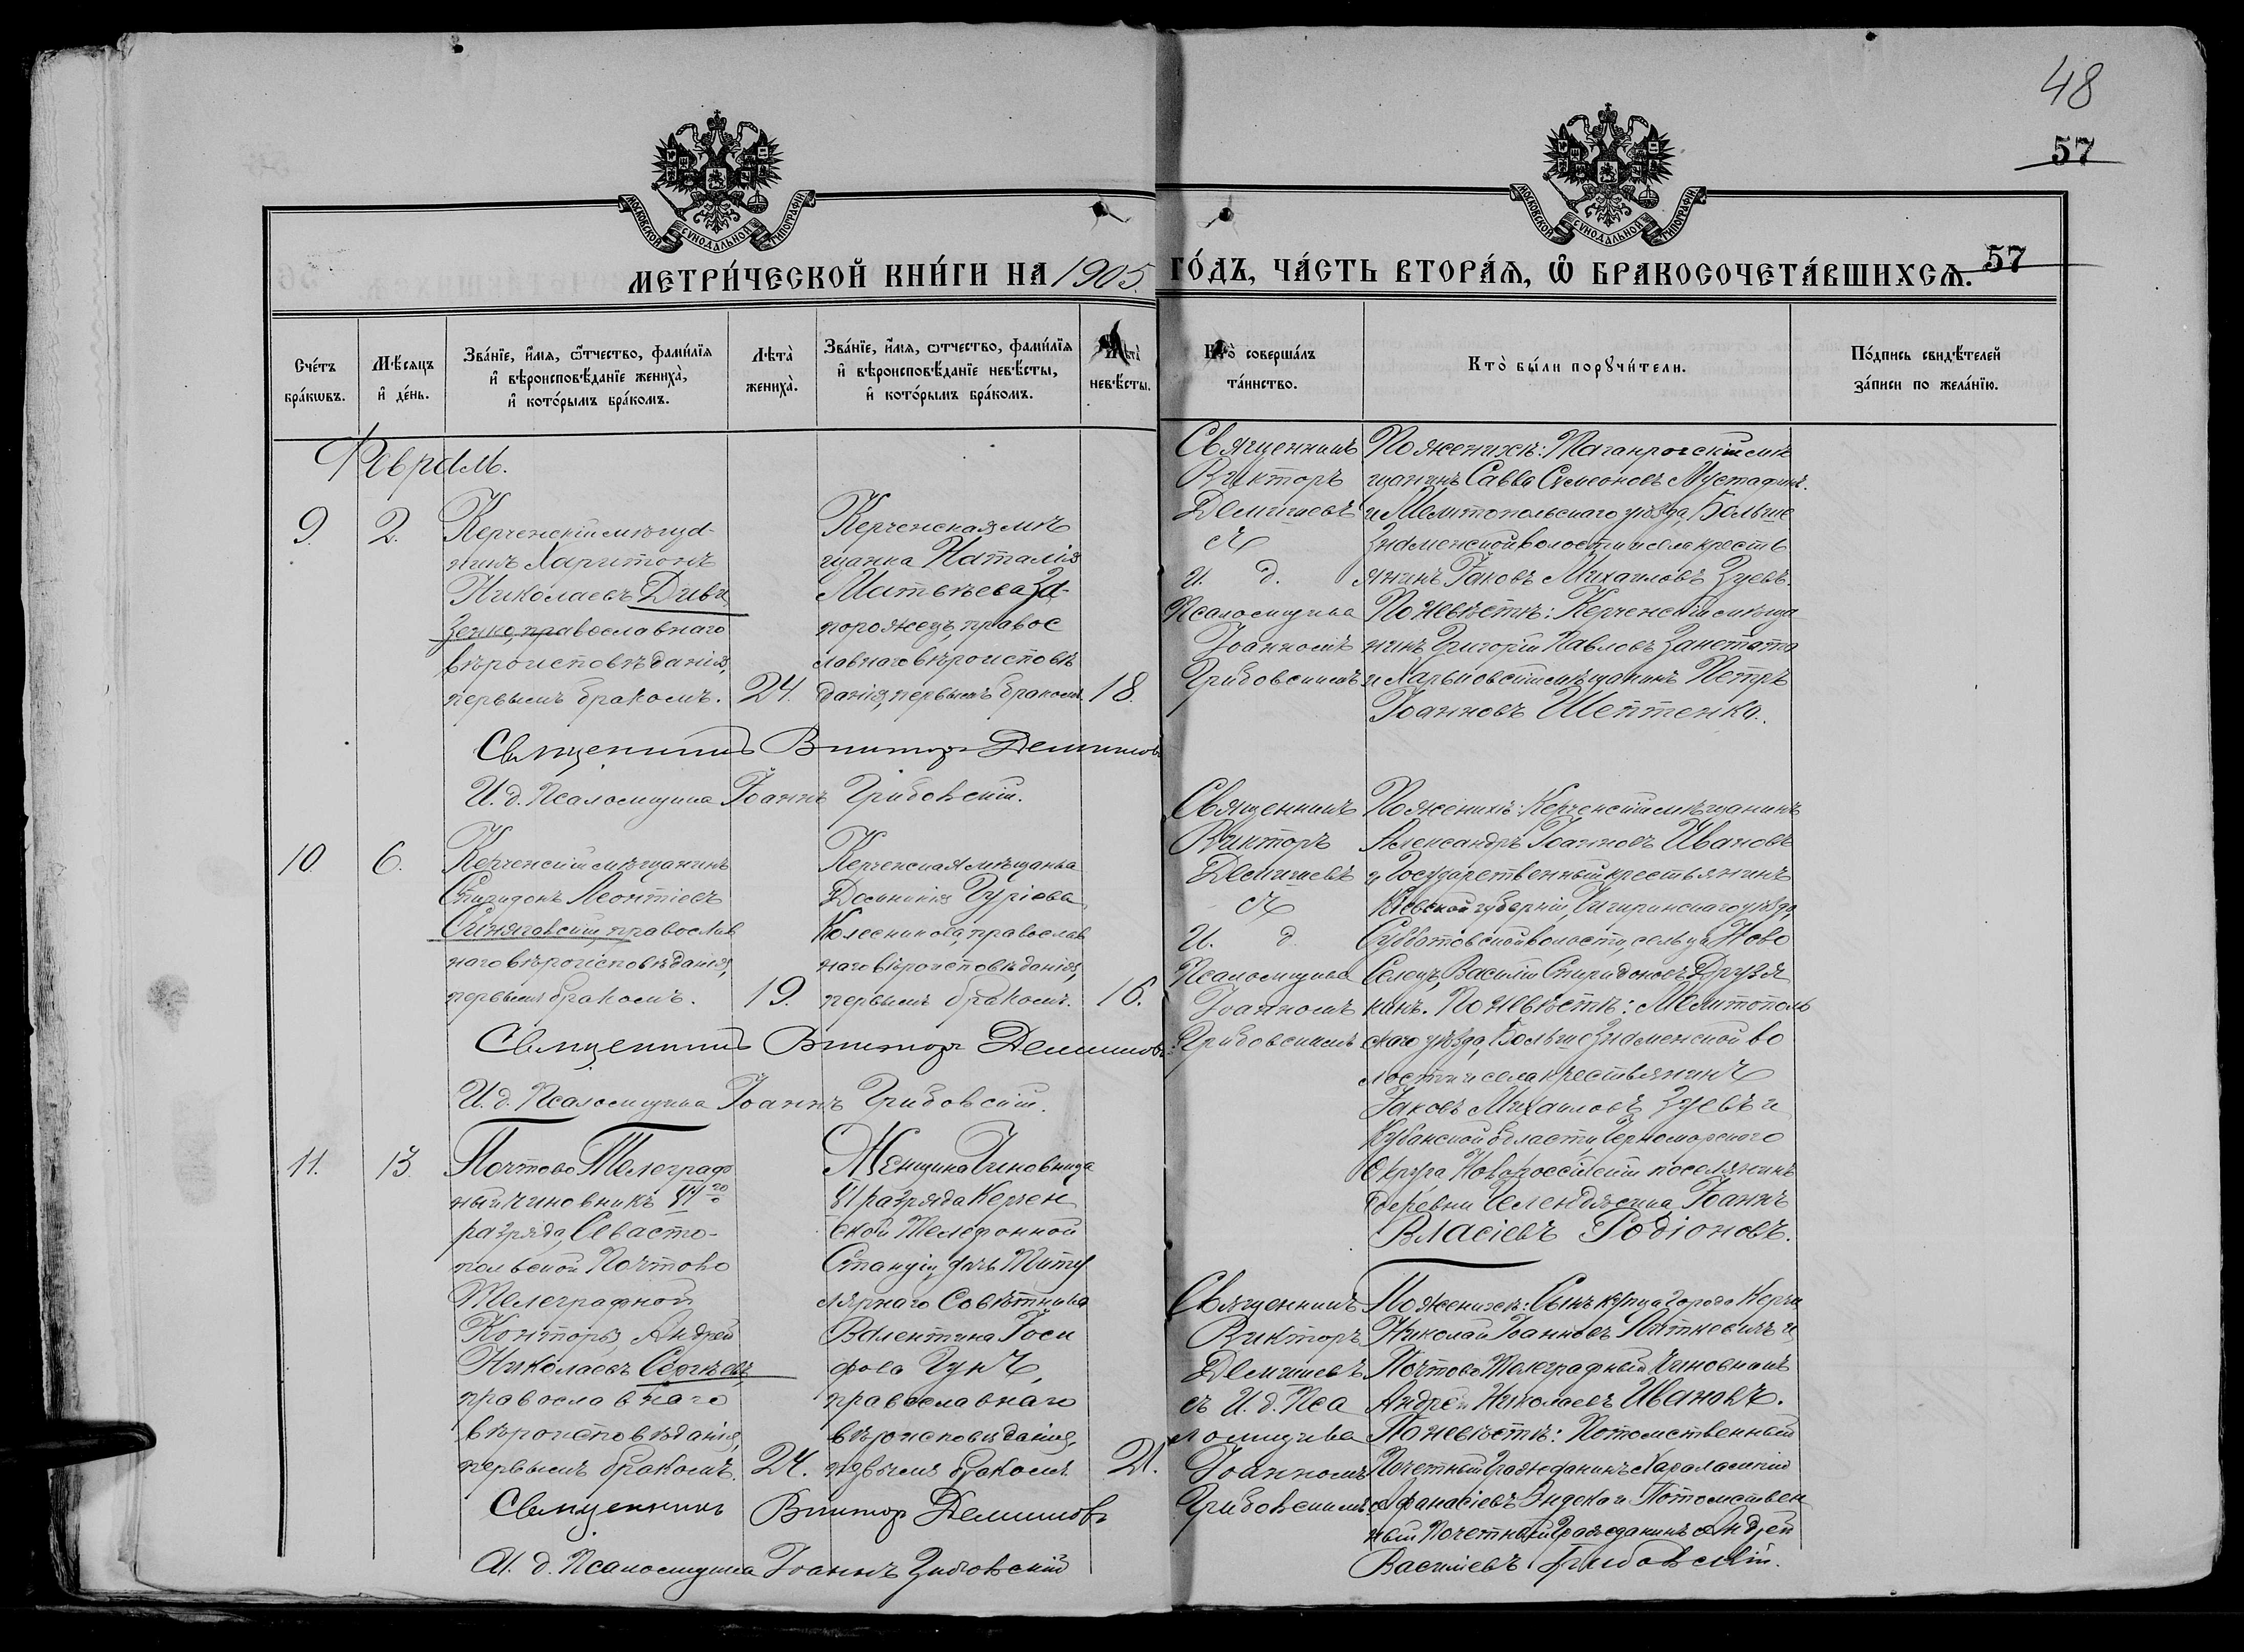 48
57
МОСКОВСКОЙ СУНОДАЛЬНОЙ ТИПОГРАФІИ
МОСКОВСКОЙ СУНОДАЛЬНОЙ ТИПОГРАФІИ
МЕТРИ́ЧЕСКОЙ КНИ́ГИ НА 1905. ГО́ДЪ, ЧА́СТЬ ВТОРА́Я, Ѡ БРАКОСОЧЕТА́ВШИХСЯ. 57
Сче́тъ бра́кωвъ.
Мѣ́сяцъ и҆ де́нь.
Зва́нїе, и҆́мя, ѻ҆́тчество, фами́лїя
и҆ вѣроисповѣ́данїе жениха̀,
и҆ кото́рымъ бра́комъ.
Лѣта̀ жениха̀.
Зва́нїе, и҆́мя, ѻ҆́тчество, фами́лїя
и҆ вѣроисповѣ́данїе невѣ́сты,
и҆ кото́рымъ бра́комъ.
невѣ́сты.
Кто̀ соверша́лъ
та́инство.
Кто̀ бы́ли порꙋчи́тели.
По́дпись свидѣ́телей
за́писи по жела́нїю.
Февраль.
9.
2.
Керченскій мѣща-
нинъ Харитонъ
Николаевъ Диви
зенко, православнаго
вѣроисповѣданія,
первымъ бракомъ.
24.
Керченская мѣ
щанка Наталія
Матвѣева За-
порожецъ, правос
лавнаго вѣроисповѣ
данія, первымъ бракомъ
18.
Священникъ
Викторъ
Демишевъ
съ
И. д.
Псаломщика
Іоанномъ
Грибовскимъ
По женихѣ: Таганрогскій мѣ
щанинъ Савва Симеоновъ Мустафинъ
и Мелитопольскаго уѣзда, Больше
Знаменской волости и села кресть
янинъ Іаковъ Михаиловъ Зуевъ.
По невѣстѣ: Керченскій мѣща
нинъ Григорій Павловъ
и Харьковскій мѣщанинъ Петръ
Іоанновъ Шептенко.
Священникъ Викторъ Демишевъ
И. д. Псаломщика Іоаннъ Грибовскій.
10.
6.
Керченскій мѣщанинъ
Спиридонъ Леонтіевъ
православ
наго вѣроисповѣданія,
первымъ бракомъ.
19.
Керченская мѣщанка
Домникія Гуріева
Колесникова, православ
наго вѣроисповѣданія,
первымъ бракомъ.
16.
Священникъ
Викторъ
Демишевъ
съ
И. д.
Псаломщика
Іоанномъ
Грибовскимъ
По женихѣ: Керченскій мѣщанинъ
Александръ Іоанновъ Ивановъ
и Государственный крестьянинъ
Кіевской губерніи, Чигиринскаго уѣзда,
Субботовской волости, сельца Ново
Селецъ, Василій Спиридоновъ Друзя
канъ. По невѣстѣ: Мелитополь
скаго уѣзда, Больше Знаменской во
лости и села крестьянинъ
Іаковъ Михаиловъ Зуевъ и
Кубанской области, Черноморскаго
Округа Новороссійскій поселянинъ
деревни Геленджика Іоаннъ
Власіевъ Родіоновъ.
Священникъ Викторъ Демишевъ
И. д. Псаломщика Іоаннъ Грибовскій.
11.
13.
Почтово Телеграф
ный чиновникъ VI го
разряда, Севасто-
польской Почтово
Телеграфной
Конторы, Андрей
Николаевъ Сергѣевъ,
православнаго
вѣроисповѣданія,
первымъ бракомъ.
24.
Женщина Чиновница
VI разряда Керчен
ской Телефонной
Станціи, дочь Титу
лярнаго Совѣтника
Валентина Іоси
фова Гунъ,
православнаго
вѣроисповѣданія,
первымъ бракомъ.
21.
Священникъ
Викторъ
Демишевъ
съ И. д. Пса
ломщика
Іоанномъ
Грибовскимъ
По женихѣ: Сынъ купца города Керчи
Николай Іоанновъ и
Почтово Телеграфный чиновникъ
Андрей Николаевъ Ивановъ.
По невѣстѣ: Потомственный
Почетный Гражданинъ Харалампій
Афанасіевъ и Потомствен
ный Почетный Гражданинъ Андрей
Василіевъ Грибовскій.
Священникъ Викторъ Демишевъ
И. д. Псаломщика Іоаннъ Грибовскій